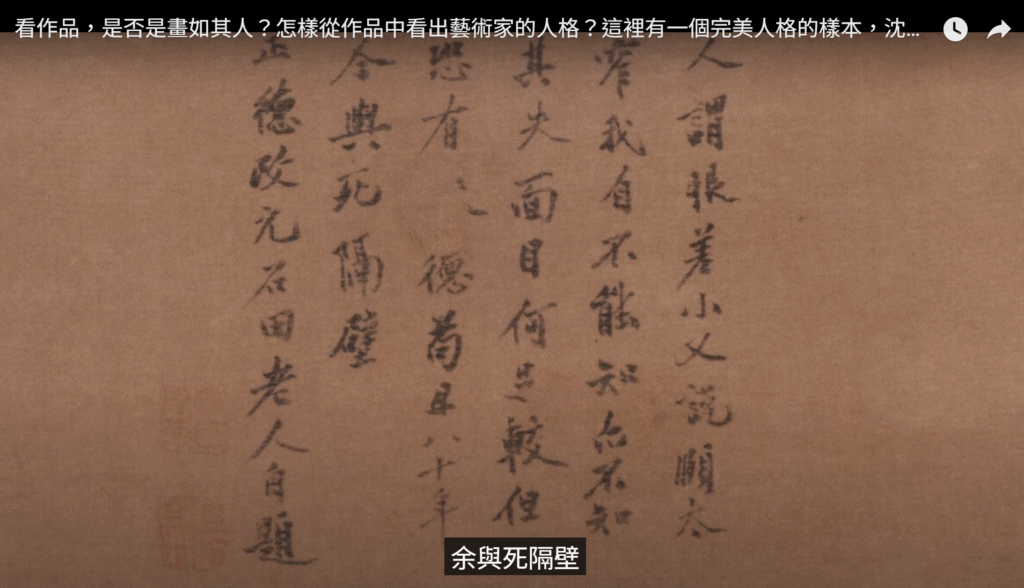 看作品，是否是畫如其人？怎樣從作品中看出藝術家的人格？這裡有一個完美人格的樣本，沈...
人謂眼差小又說頤太
窄我自不能知亦不知
其失面目何足較但
恐有德苟且八十年
今與死隔壁
正德改元石田老人自題
余與死隔壁